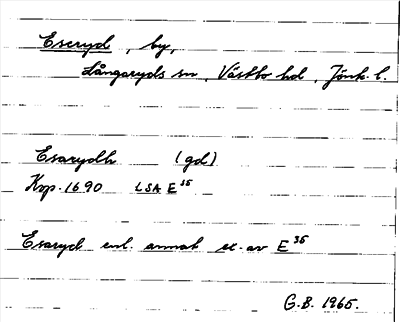 Eseryd, by,
Långaryds sn, Västbo hd, Jönk. l.
Esarydh (gd)
Kop. 1690 LSA E 35
Esaryd enl. annat ex. av E 35
G.B. 1965.